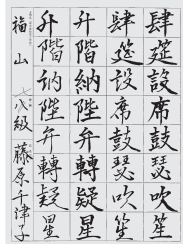 肆筵設席鼓瑟吹笙
肆筵設席鼓瑟吹笙
升階納陛弁轉疑星
升階納陛弁轉疑星
福山 八級 藤原千津子